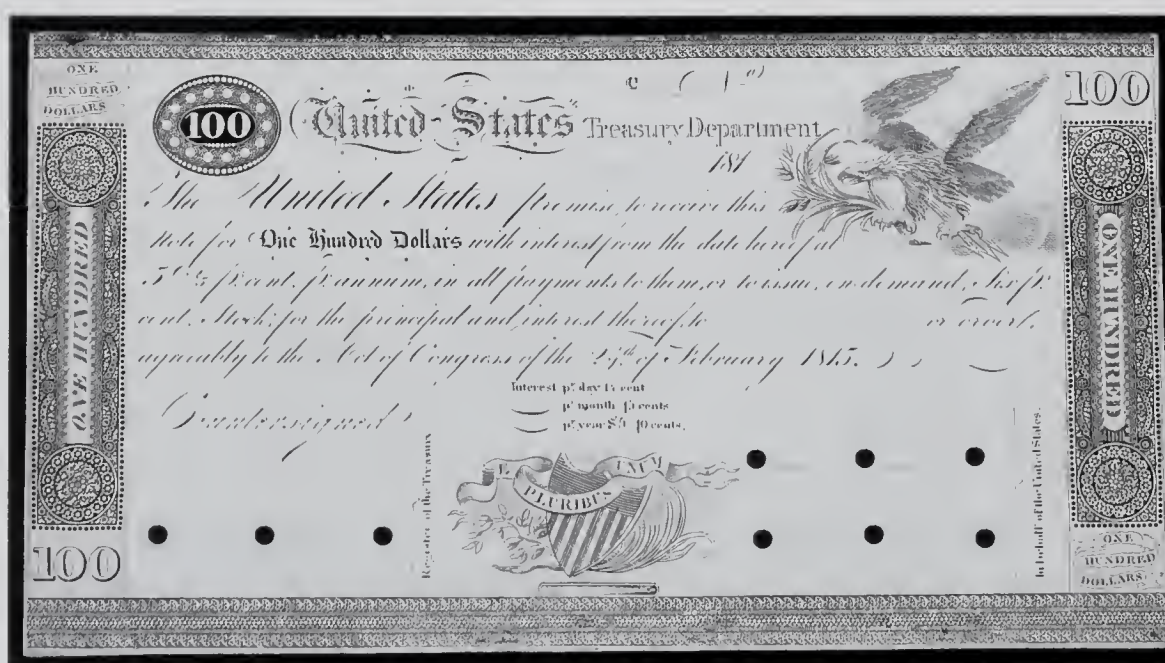 ONE
HUNDRED
DOLLARS
100
100 United States Treasury Department
181
The United States promise to receive this
Note for One Hundred Dollars with interest from the date hereof at
5 2/5 pr. cent. pr. annum, in all payments to them, or to issue, on demand, Six pr.
cent. Stock, for the principal and interest thereof, to or order,
agreeably to the Act of Congress of the 24th of February 1815.
Interest pr. day 1½ cent
pr. month 45 cents
pr. year $5 40 cents.
Countersigned
ONE HUNDRED
ONE HUNDRED
Register of the Treasury
E. PLURIBUS UNUM
In behalf of the United States.
100
ONE
HUNDRED
DOLLARS